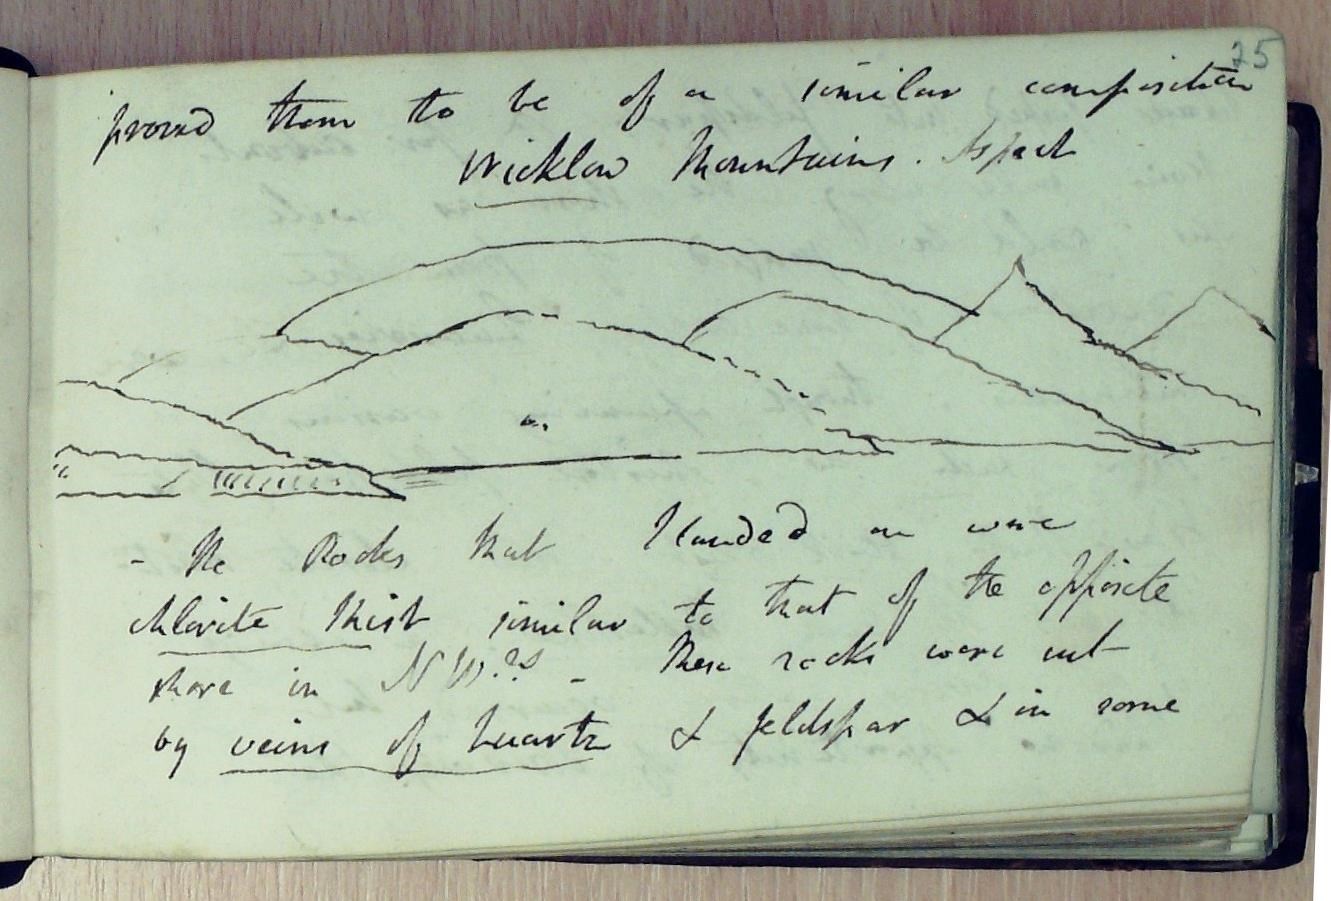 25
proved them to be of a similar composition
Wicklow Mountains. Aspect
- The Rocks that I landed on were
chlorite shist similar to that of the opposite
shore in N W.
- These rocks were cut
by veins of quartz & feldspar & in some